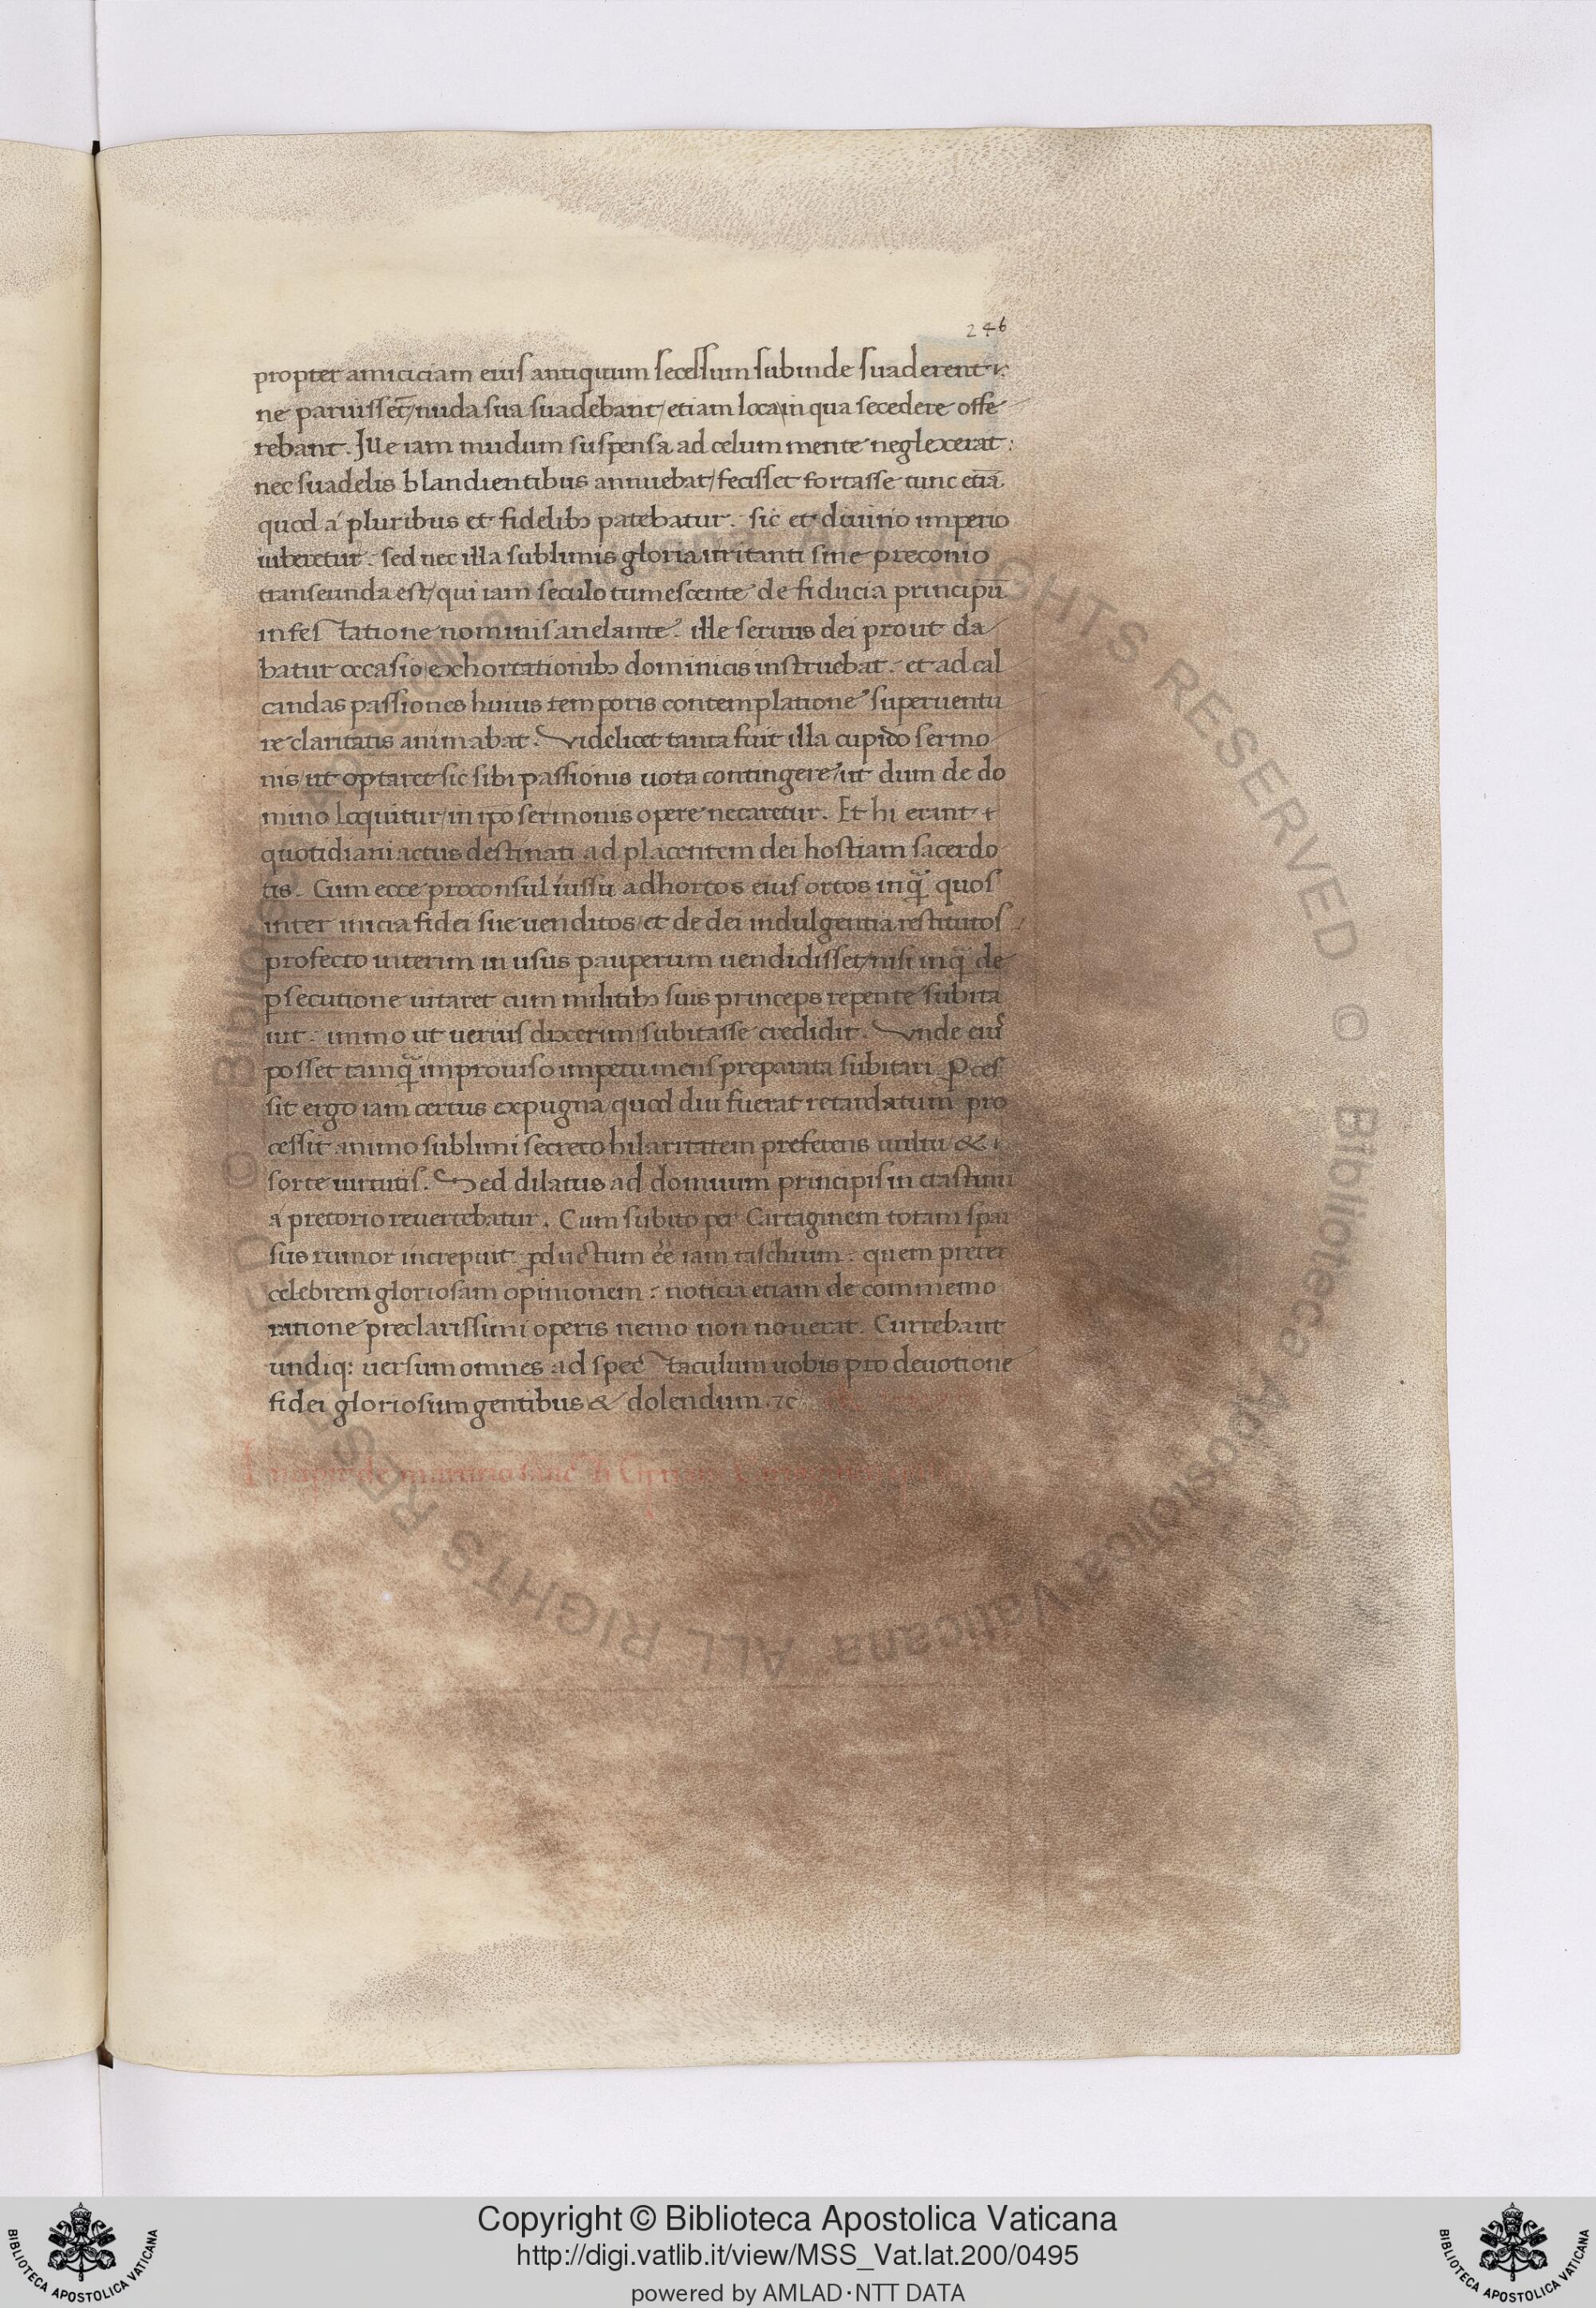 246
propter amiciciam eius antiquum secessum subinde suaderent
ne paruisset̄/nuda sua suadebant/etiam loca in qua secedere offe
rebant. Ille iam mudum suspensa ad celum mente neglexerat:
nec suadelis blandientibus annuebat/fecisset fortasse tunc etiā
quod á pluribus et fidelibꝫ patebatur. sic et diuino imperio
iuberetur. sed nec illa sublimis gloria uiritanti sine preconio
transeunda est/qui iam seculo tumescente de fiducia principū
infestatione nominis anelante. ille seruus dei prout da
batur occasio exhortationibꝫ dominicis instruebat. et ad cal
candas passiones huius temporis contemplatione superuentu
re claritatis animabat. Videlicet tanta fuit illa cupido sermo
nis/ut optaret sic sibi passionis uota contingere/ut dum de do
mino loquitur/in ipō sermonis opere necaretur. Et hi erant
quotidiani actus destinati ad placentem dei hostiam sacerdo
tis. Cum ecce proconsul iussu ad hortos eius ortos inqͣ quos
inter inicia fidei sue uenditos/et de dei indulgentia restitutos
profecto iterim in usus pauperum uendidisset/nisi inqͣ de
ꝑsecutione uitaret cum militibꝫ suis princeps repente subita
uit. immo ut uerius dixerim subitasse credidit. Vnde eni
posset tamqͣ improuiso impetu mens preparata subitari. Ꝓces
sit ergo iam certus expugna quod diu fuerat retardatum pro
cessit animo sublimi secreto hilaritatem preferens uultu &
forte uirtutis. Sed dilatus ad domuum principis in crastinū
á pretorio reuertebatur. Cum subito per Cartaginem totam spar
sus rumor increpuit. ꝓductum eē iam taschium: quem preter
celebrem gloriosam opinionem: noticia etiam de commemo
ratione preclarissimi operis nemo non nouerat. Currebant
undiqꝫ uersum omnes ad spectaculum uobis pro deuotione
fidei gloriosum gentibus & dolendum. ⁊c
Incipit de martirio sancti Cipriani
Copyright © Biblioteca Apostolica Vaticana
http://digi.vatlib.it/view/MSS_Vat.lat.200/0495
powered by AMLAD·NTT DATA
BIBLIOTECA APOSTOLICA VATICANA
BIBLIOTECA APOSTOLICA VATICANA
© Biblioteca Apostolica Vaticana ALL RIGHTS RESERVED
© Biblioteca Apostolica Vaticana ALL RIGHTS RESERVED